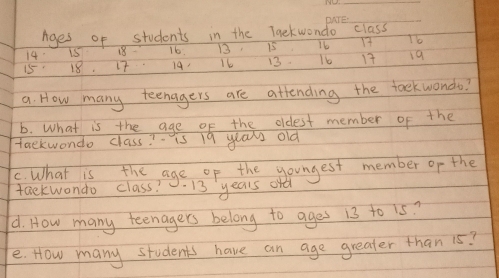 NO.
DATE:
Ages of students in the Taekwondo class
14 . 15 . 18 . 16 . 13 . 15 . 16 17 16
15 . 18 . 17 . . 14 . 16 13 . 16 17 19
a. How many teenagers are attending the taekwondo?
b. What is the age of the oldest member of the
taekwondo class? - is 19 years old
c. What is the age of the youngest member of the
taekwondo class? - 13 years old
d. How many teenagers belong to ages 13 to 15?
e. How many students have an age greater than 15?